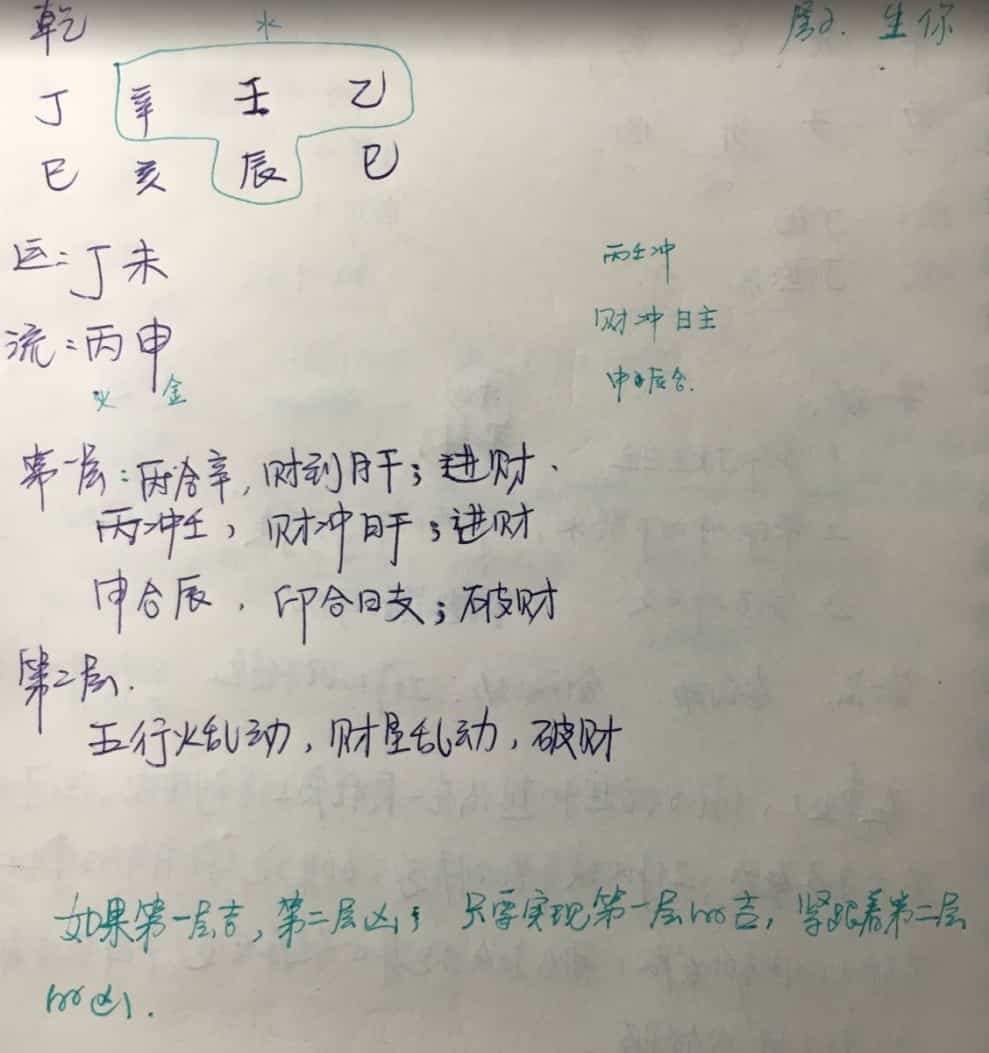 乾
水
层2. 生你
丁 辛 壬 乙
巳 亥 辰 巳
运: 丁未
流: 丙申
火 金
丙壬冲
财冲日主
申辰合.
第一层: 丙合辛, 财到月干; 进财.
丙冲壬, 财冲日干; 进财
申合辰, 印合日支; 破财
第二层.
五行火乱动, 财星乱动, 破财
如果第一层吉, 第二层凶; 只要实现第一层的吉, 紧跟着第二层
的凶.